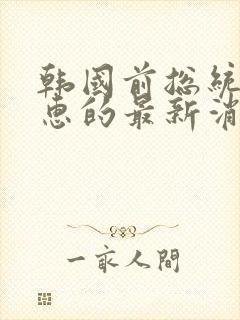 韩国前总统
惠的最新消
一家人間